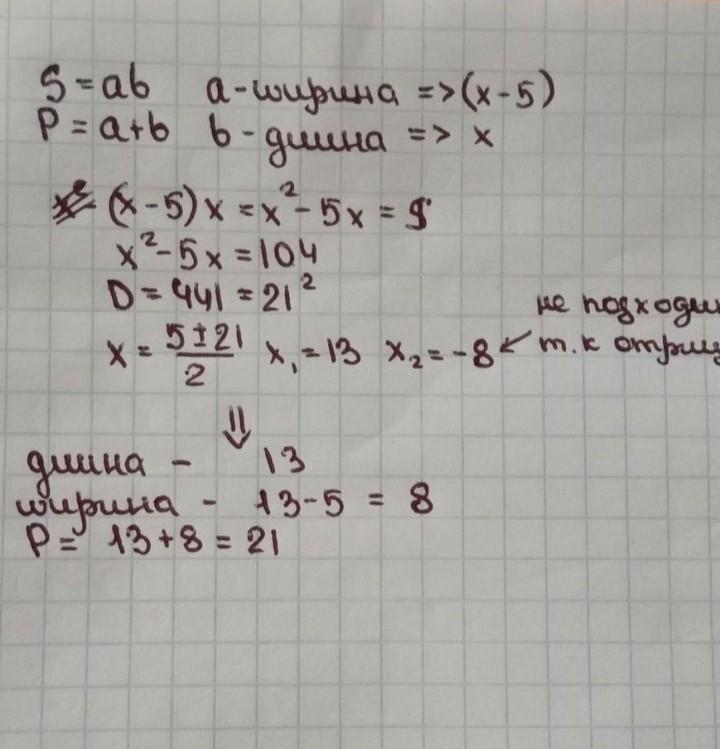 S = ab   a - ширина => (x - 5)
P = a + b   b - длина => x
(x - 5) x = x² - 5x = S
x² - 5x = 104
D = 441 = 21²
x = (5 ± 21)/2   x₁ = 13   x₂ = -8 ← не подходи
т.к отриц
⇓
длина - 13
ширина - 13 - 5 = 8
P = 13 + 8 = 21